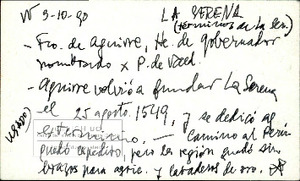 W 9-10-90 LA SERENA
(términos de La Ser.)
- Fco. de Aguirre, He. de gobernador
nombrado x P. de Vald.
- Aguirre volvió a fundar La Serena
el 25 agosto 1549, y se dedicó al
exterminio. — camino al Perú
quedó expedito, pero la región quedó sin
brazos para agric. y lavaderos de oro.